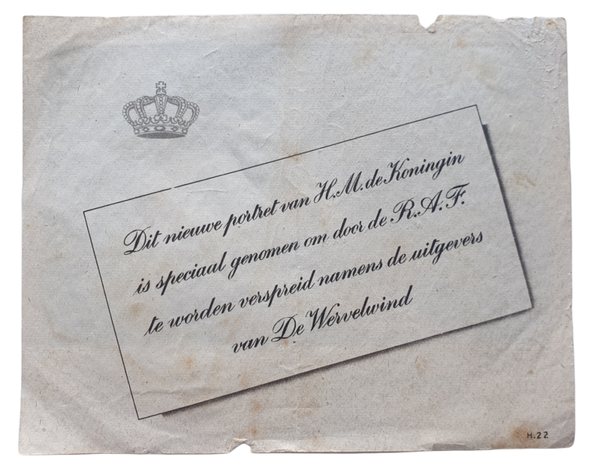 Dit nieuwe portret van H.M. de Koningin
is speciaal genomen om door de R.A.F.
te worden verspreid namens de uitgevers
van De Wervelwind
H.22